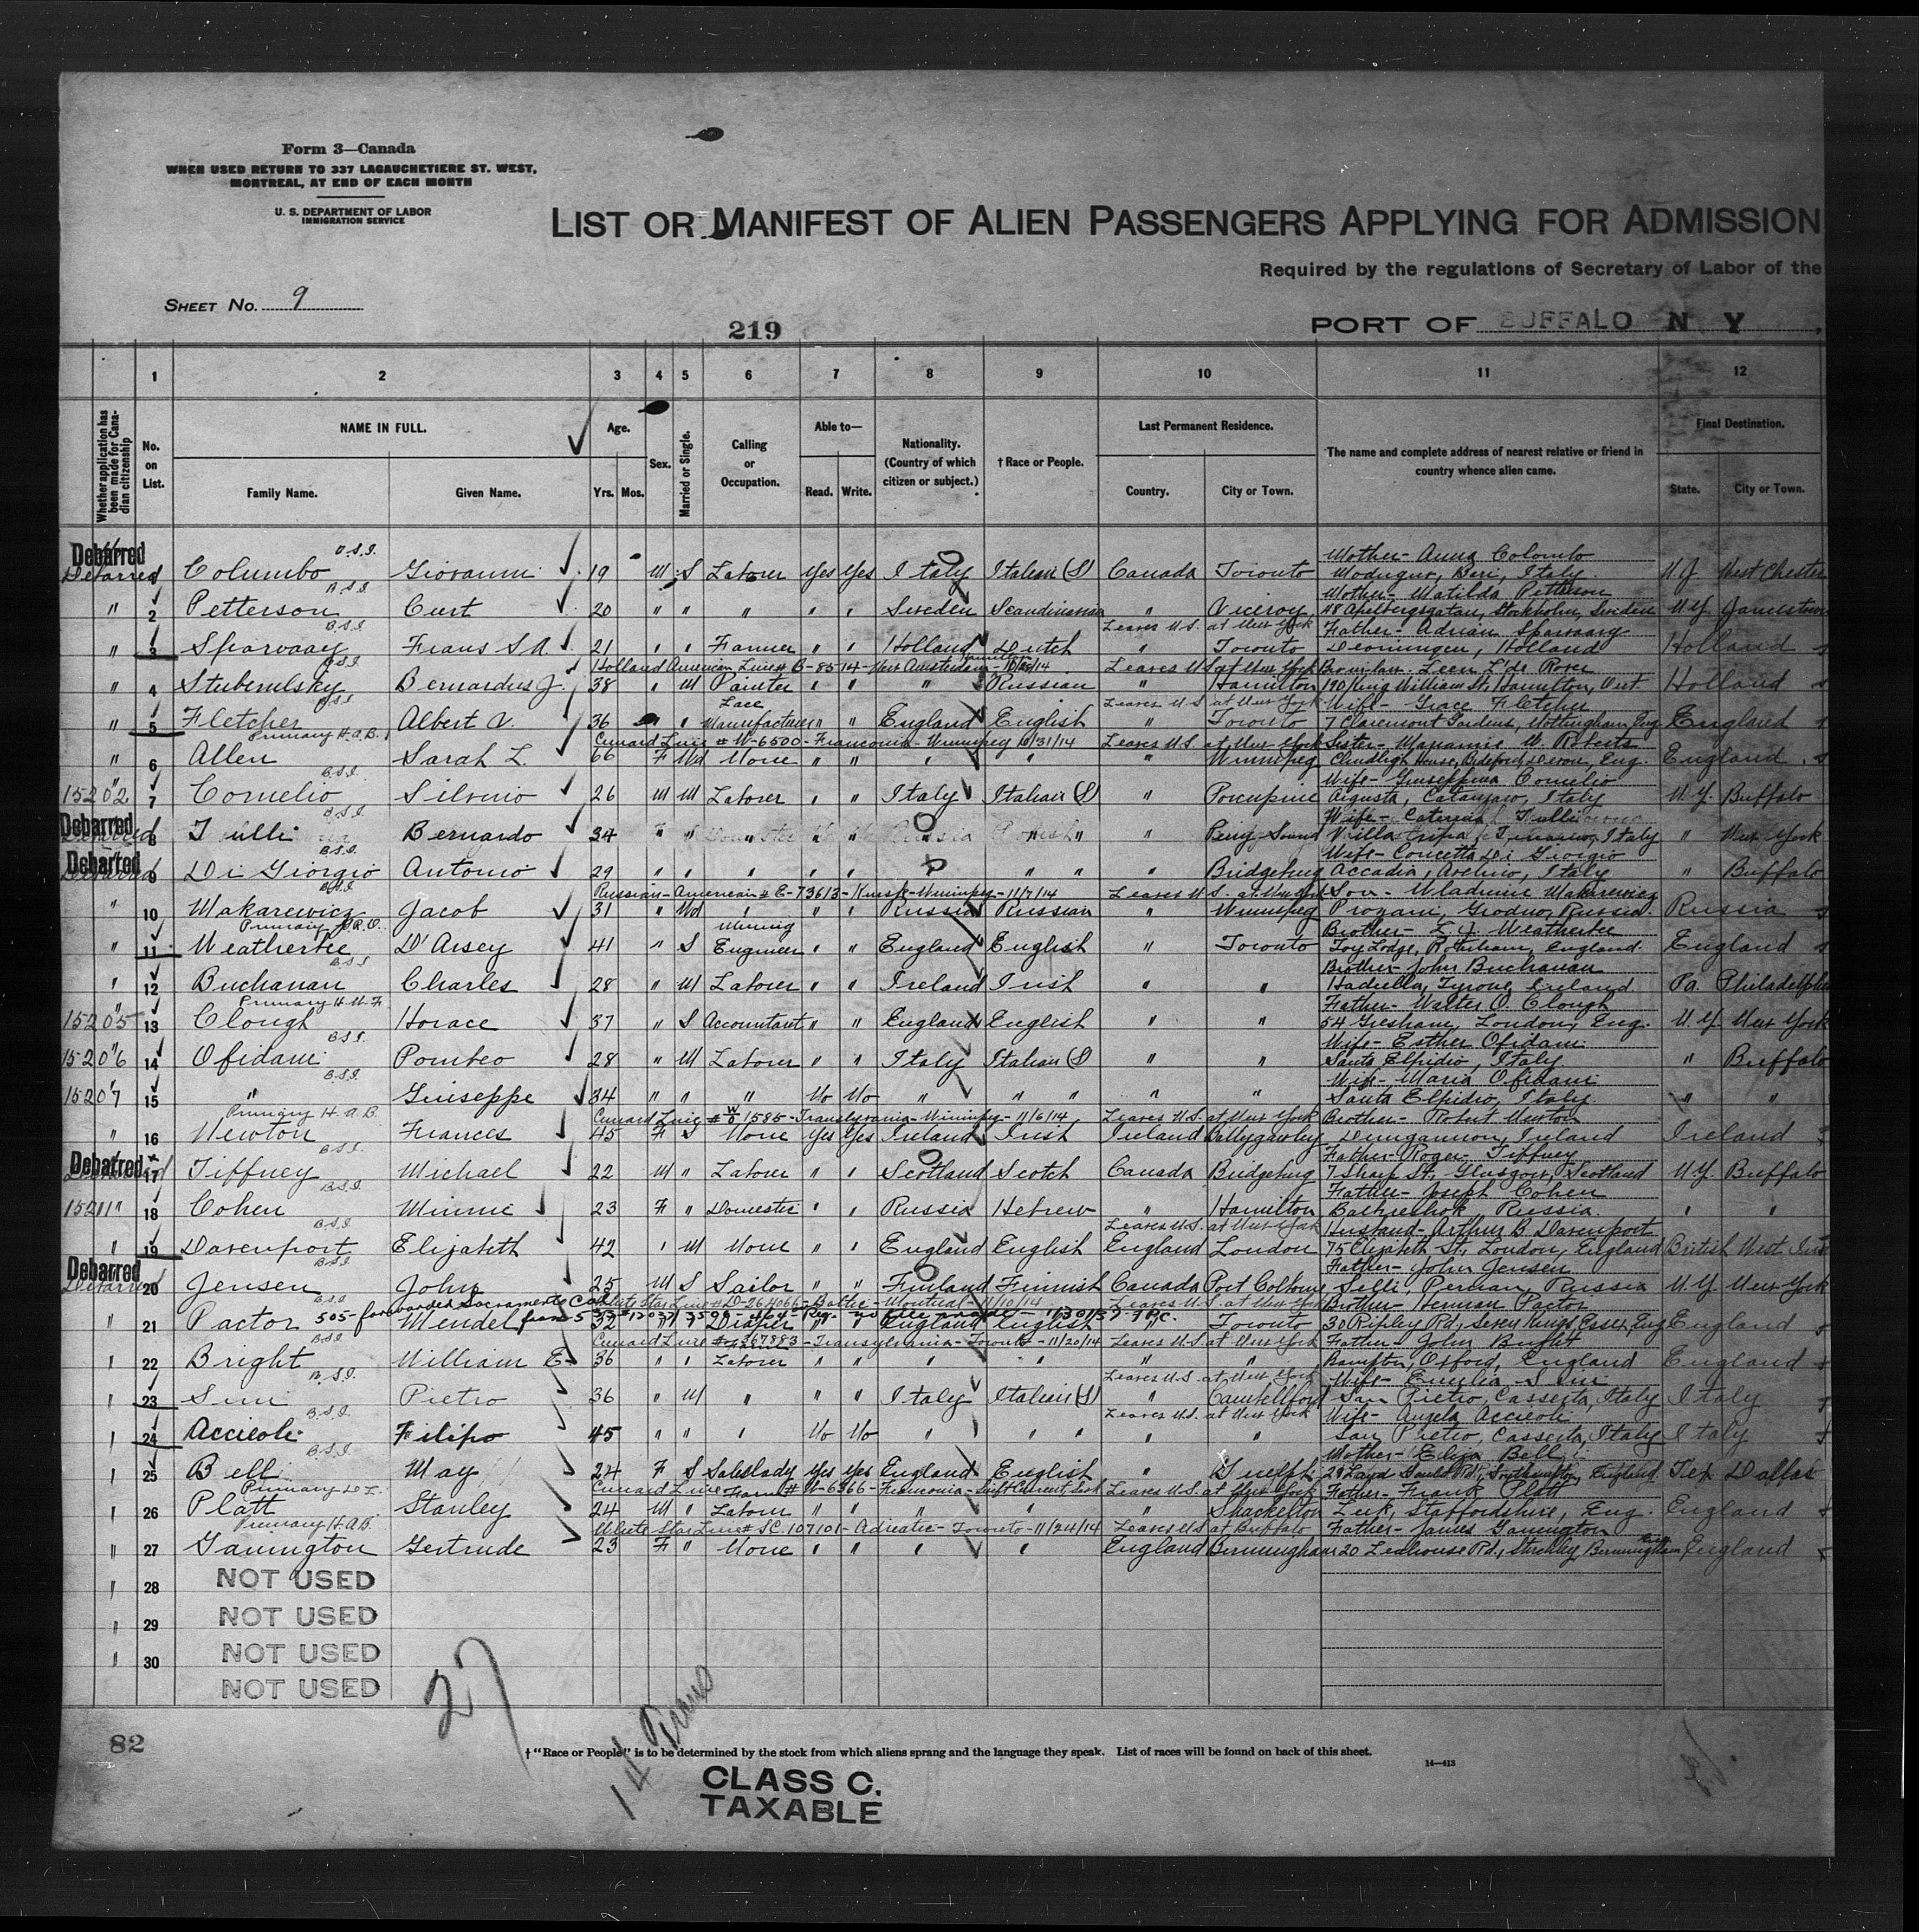 Form 3—Canada
WHEN USED RETURN TO 337 LAGAUCHETIERE ST. WEST,
MONTREAL, AT END OF EACH MONTH
U. S. DEPARTMENT OF LABOR
IMMIGRATION SERVICE
LIST OR MANIFEST OF ALIEN PASSENGERS APPLYING FOR ADMISSION
Required by the regulations of Secretary of Labor of the
SHEET No. 9
219
PORT OF BUFFALO N Y
1 2 3 4 5 6 7 8 9 10 11 12
Whether application has been made for Canadian citizenship
No. on List.
NAME IN FULL.
Family Name. Given Name.
Age. Yrs. Mos.
Sex.
Married or Single.
Calling or Occupation.
Able to— Read. Write.
Nationality. (Country of which citizen or subject.)
† Race or People.
Last Permanent Residence. Country. City or Town.
The name and complete address of nearest relative or friend in country whence alien came.
Final Destination. State. City or Town.
Debarred B.S.I. Mother- Anna Colombo
Debarred 1 Columbo Giovanni 19 M S Laborer Yes Yes Italy Italian (S) Canada Toronto Modugno, Bari, Italy N.J. West Chester
B.S.I. Mother- Matilda Petterson
" 2 Petterson Curt 20 " " " " " Sweden Scandinavian " Viceroy 48 Apelbergsgatan, Stockholm, Sweden N.Y. Jamestown
B.S.I. Leaves U.S. at New York Father- Adrian Sparvaay
" 3 Sparvaay Frans S.A. 21 " " Farmer " " Holland Dutch " Toronto Holland
B.S.I. Holland American Line # B-8514- New Amsterdam- Leaves U.S. at New York
" 4 Bernardus J. 38 " M Painter " " " Russian " Hamilton 190 King William St., Hamilton, Ont. Holland
B.S.I. Lace Leaves U.S. at New York Wife- Grace Fletcher
" 5 Fletcher Albert V. 36 " " Manufacturer " " England English " Toronto 7 Claremont Gardens, Nottingham, Eng England
Primary H.A.B. Cunard Line # W-6500- Franconia- Winnipeg 10/31/14 Leaves U.S. at New York Sister- W. Roberts
" 6 Allen Sarah L. 66 F Wd None " " " " " Winnipeg House, Bideford, Devon, Eng. England
B.S.I. Wife- Giuseppina Cornelio
15202 7 Cornelio Silvinio 26 M M Laborer " " Italy Italian (S) " Porcupine Italy N.Y. Buffalo
Debarred B.S.I. Wife- Caterina Tulli
8 Tulli Bernardo 34 " " " " " " Parry Sound Italy " New York
Debarred B.S.I. Wife- Concetta Di Giorgio
9 Di Giorgio Antonio 29 " " " " " " " " Bridgeburg Accadia, Avelino, Italy " Buffalo
B.S.I. Russian-American # E-73613- Kursk- Winnipeg- 11/7/14 Leaves U.S. at New York Son- Wladimir Makarewicz
" 10 Makarewicz Jacob 31 " Wd " " " Russia Russian " Winnipeg Grodno, Russia. Russia
Primary Mining Brother- Weatherbee
" 11 Weatherbee D'Arsey 41 " S Engineer " " England English " Toronto England. England
B.S.I. Brother- John Buchanan
" 12 Buchanan Charles 28 " M Laborer " " Ireland Irish " " Tyrone, Ireland Pa. Philadelphia
Primary H.H.F. Father- Walter O. Clough
15205 13 Clough Horace 37 " S Accountant " " England English " " 54 Gresham, London, Eng. N.Y. New York
B.S.I. Wife- Esther Ofidani
15206 14 Ofidani Pombeo 28 " M Laborer " " Italy Italian (S) " " Santa Elpidio, Italy " Buffalo
B.S.I. Wife- Maria Ofidani
15207 15 " Giuseppe 34 " " " No No " " " " Santa Elpidio, Italy. " "
Primary H.A.B. Cunard Line # W 1585- Transylvania- Winnipeg- 11/6/14 Leaves U.S. at New York Brother- Robert Newton
" 16 Newton Frances 45 F S None Yes Yes Ireland Irish Ireland Ballygawley Dungannon, Ireland Ireland
B.S.I. Father- Roger Tiffney
Debarred 17 Tiffney Michael 22 M " Laborer " " Scotland Scotch Canada Bridgeburg 7 Sharp St., Glasgow, Scotland N.Y. Buffalo
B.S.I. Father- Joseph Cohen
15211 18 Cohen Minnie 23 F " Domestic " " Russia Hebrew " Hamilton Russia. " "
B.S.I. Leaves U.S. at New York Husband- Arthur B. Davenport
" 19 Davenport Elizabeth 42 " M None " " England English England London 75 Elizabeth St., London, England British West Ind
Debarred B.S.I. Father- John Jensen
20 Jensen John 25 M S Sailor " " Finland Finnish Canada Port Colborne Russia N.Y. New York
B.S.I. 505- forwarded Sacramento Cal White Star Line # D-264066- Baltic- Montreal- 11/19/14 Leaves U.S. at New York Brother- Herman Pactor
" 21 Pactor Mendel 32 " " Draper " " England English " Toronto 30 Ripley Rd., Seven Kings, Essex, Eng England
B.S.I. Cunard Line # 367883- Transylvania- Toronto- 11/20/14 Leaves U.S. at New York Father- John Bright
" 22 Bright William E. 36 " " Laborer " " " " " " Bampton, Oxford, England England
B.S.I. Leaves U.S. at New York Wife- Emilia Simi
" 23 Simi Pietro 36 " M " " " Italy Italian (S) " Campbellford San Pietro, Casserta, Italy Italy
B.S.I. Leaves U.S. at New York Wife- Angela Accieoli
" 24 Accieoli Filipo 45 " " " No No " " " " San Pietro, Casserta, Italy Italy
B.S.I. Mother- Eliza Bell
" 25 Bell May 24 F S Saleslady Yes Yes England English " Guelph Southampton, England. Tex Dallas
Primary Farm Cunard Line # W-6366- Franconia- Swift Current, Sask Leaves U.S. at New York Father- Frank Platt
" 26 Platt Stanley 24 M " Laborer " " " " " Shackelton Leek, Staffordshire, Eng. England
Primary H.A.B. White Star Line # SC. 107101- Adriatic- Toronto- 11/24/14 Leaves U.S. at Buffalo Father- James Gannington
" 27 Gannington Gertrude 23 F " None " " " " England Birmingham 20 Rd., Birmingham England
" 28 NOT USED
" 29 NOT USED
" 30 NOT USED
NOT USED
27
82
† "Race or People" is to be determined by the stock from which aliens sprang and the language they speak. List of races will be found on back of this sheet.
14—413
CLASS C.
TAXABLE